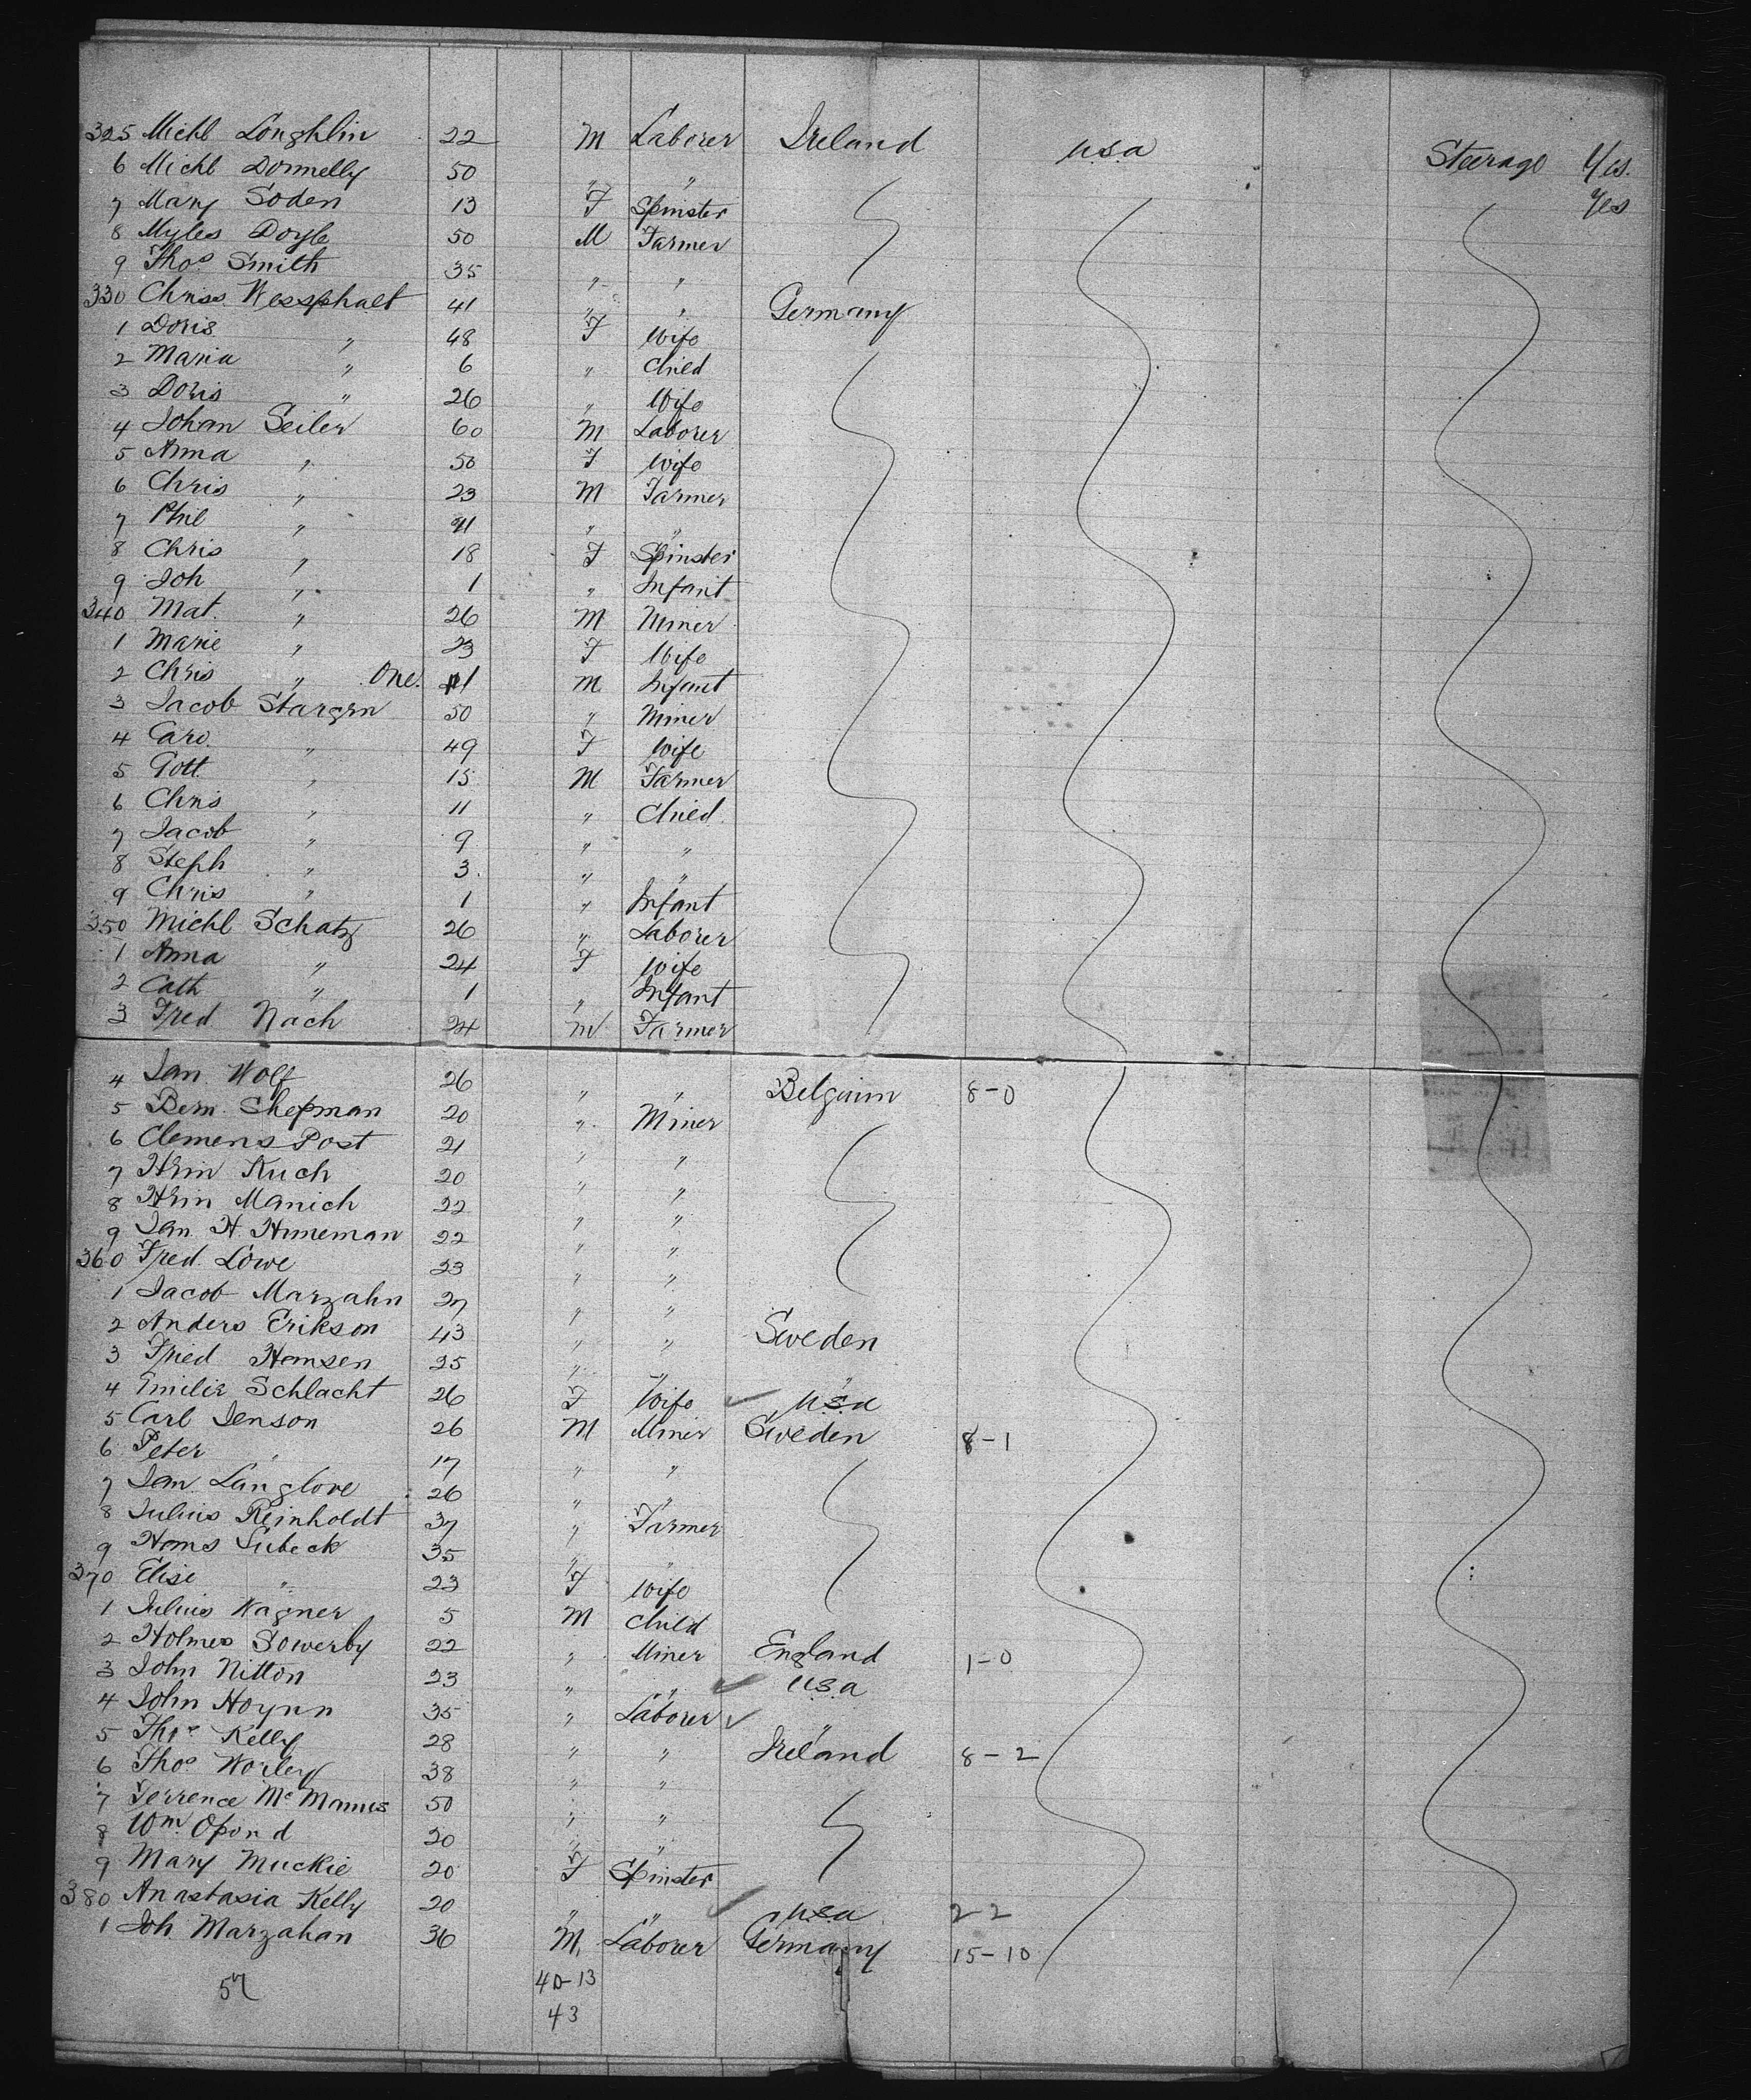 325 Michl Loughlin 22 M Laborer Ireland U.S.A Steerage Yes.
6 Michl Donnelly 50 " " Yes
7 Mary Soden 13 F Spinster
8 Myles Doyle 50 M Farmer
9 Thos Smith 35 " "
330 Chriss Wessphalt 41 " " Germany
1 Doris " 48 F Wife
2 Maria " 6 " Child
3 Doris " 26 " Wife
4 Johan Seiler 60 M Laborer
5 Anna " 50 F Wife
6 Chris " 23 M Farmer
7 Phil " 21 " "
8 Chris " 18 F Spinster
9 Joh " 1 " Infant
340 Mat. " 26 M Miner
1 Marie " 23 F Wife
2 Chris " One. 1 M Infant
3 Jacob Stargrn 50 " Miner
4 Caro. " 49 F Wife
5 Gott. " 15 M Farmer
6 Chris " 11 " Child
7 Jacob " 9 " "
8 Steph " 3. " "
9 Chris " 1 " Infant
350 Michl Schatz 26 " Laborer
1 Anna " 24 F Wife
2 Cath " 1 " Infant
3 Fred Nach 24 M Farmer
4 Jan Wolf 26 " " Belgaim 8-0
5 Bern. Chepman 20 " Miner
6 Clemens Post 21 " "
7 Hrin Kuch 20 " "
8 Hrin Manich 22 " "
9 Jan. H. Huneman 22 " "
360 Fred. Lowe 23 " "
1 Jacob Marzahn 27 " "
2 Anders Erikson 43 " " Sweden
3 Fried Hansen 25 " " "
4 Emilie Schlacht 26 F Wife U.S.A
5 Carl Jenson 26 M Miner Sweden 8-1
6 Peter " 17 " "
7 Jan Langlove 26 " "
8 Julius Reinholdt 37 " Farmer
9 Hans Lubeck 35 " "
370 Elise " 23 F Wife
1 Julius Wagner 5 M Child
2 Holmes Sowerby 22 " Miner England 1-0
3 John Nitton 23 " " U.S.A
4 John Hoynn 35 " Laborer "
5 Thos Kelly 28 " " Ireland 8-2
6 Thos Worley 38 " "
7 Terrence McManus 50 " "
8 Wm. Opond 20 " "
9 Mary Muckie 20 F Spinster
380 Anastasia Kelly 20 " " U.S.A 22
1 Joh Marzahan 36 M. Laborer Germany 15-10
57 40-13
43